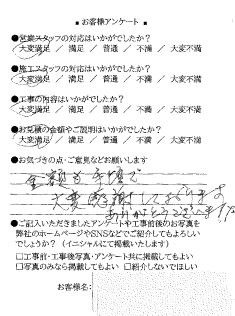 ■ お客様アンケート ■
●営業スタッフの対応はいかがでしたか？
大変満足 ／ 満足 ／ 普通 ／ 不満 ／ 大変不満
●施工スタッフの対応はいかがでしたか？
大変満足 ／ 満足 ／ 普通 ／ 不満 ／ 大変不満
●工事の内容はいかがでしたか？
大変満足 ／ 満足 ／ 普通 ／ 不満 ／ 大変不満
●お見積の金額やご説明はいかがでしたか？
大変満足 ／ 満足 ／ 普通 ／ 不満 ／ 大変不満
●お気づきの点・ご意見などお願いします
金額も手頃で
大変感謝しております
ありがとうございます
●ご記入いただきましたアンケートや工事前後のお写真を
弊社のホームページやSNSなどでご紹介してもよろしい
でしょうか？（イニシャルにて掲載いたします）
□工事前・工事後写真・アンケート共に掲載してもよい
□写真のみなら掲載してもよい □紹介しないでほしい
お客様名：